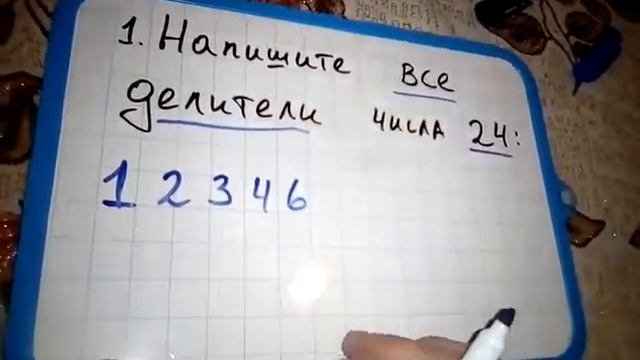 1. Напишите все
делители числа 24:
1 2 3 4 6